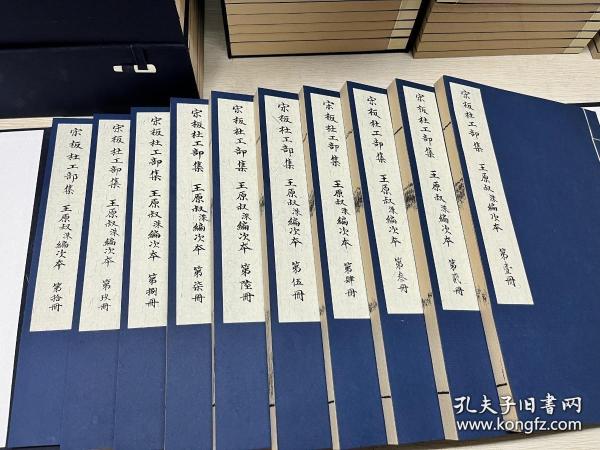 宋板杜工部集 王原叔洙編次本 第壹冊
宋板杜工部集 王原叔洙編次本 第貳冊
宋板杜工部集 王原叔洙編次本 第叁冊
宋板杜工部集 王原叔洙編次本 第肆冊
宋板杜工部集 王原叔洙編次本 第伍冊
宋板杜工部集 王原叔洙編次本 第陸冊
宋板杜工部集 王原叔洙編次本 第柒冊
宋板杜工部集 王原叔洙編次本 第捌冊
宋板杜工部集 王原叔洙編次本 第玖冊
宋板杜工部集 王原叔洙編次本 第拾冊
孔夫子旧书网
www.kongfz.com